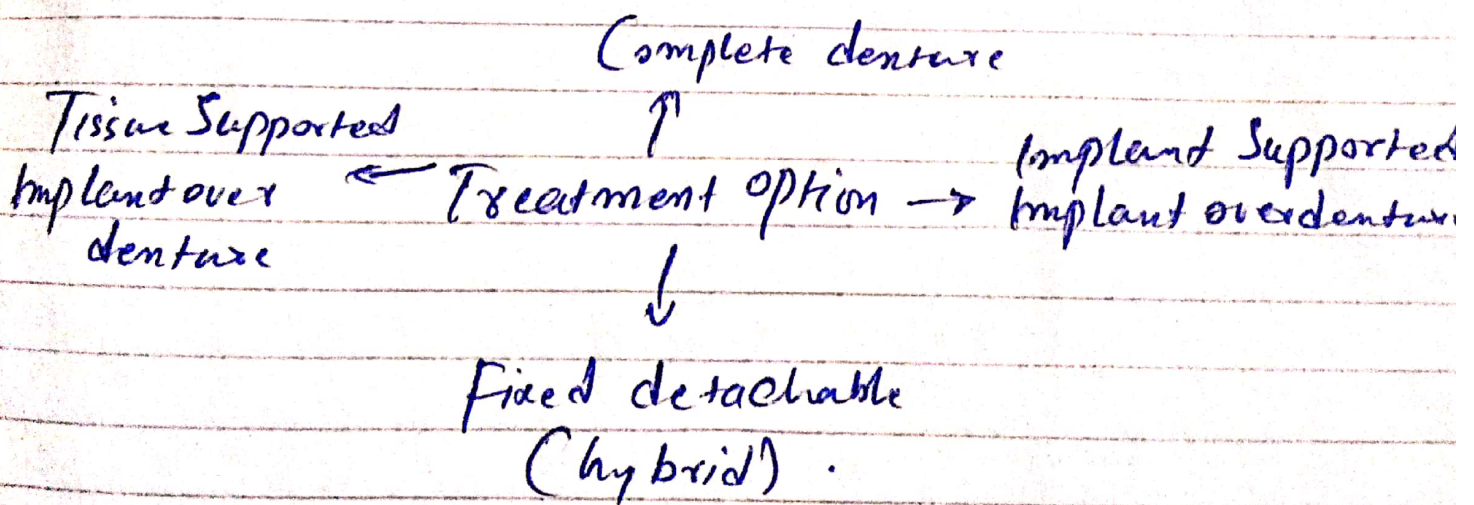 Complete denture
↑
Tissue Supported
Implant over
denture
← Treatment option →
Implant Supported
Implant overdenture
↓
Fixed detachable
(hybrid).